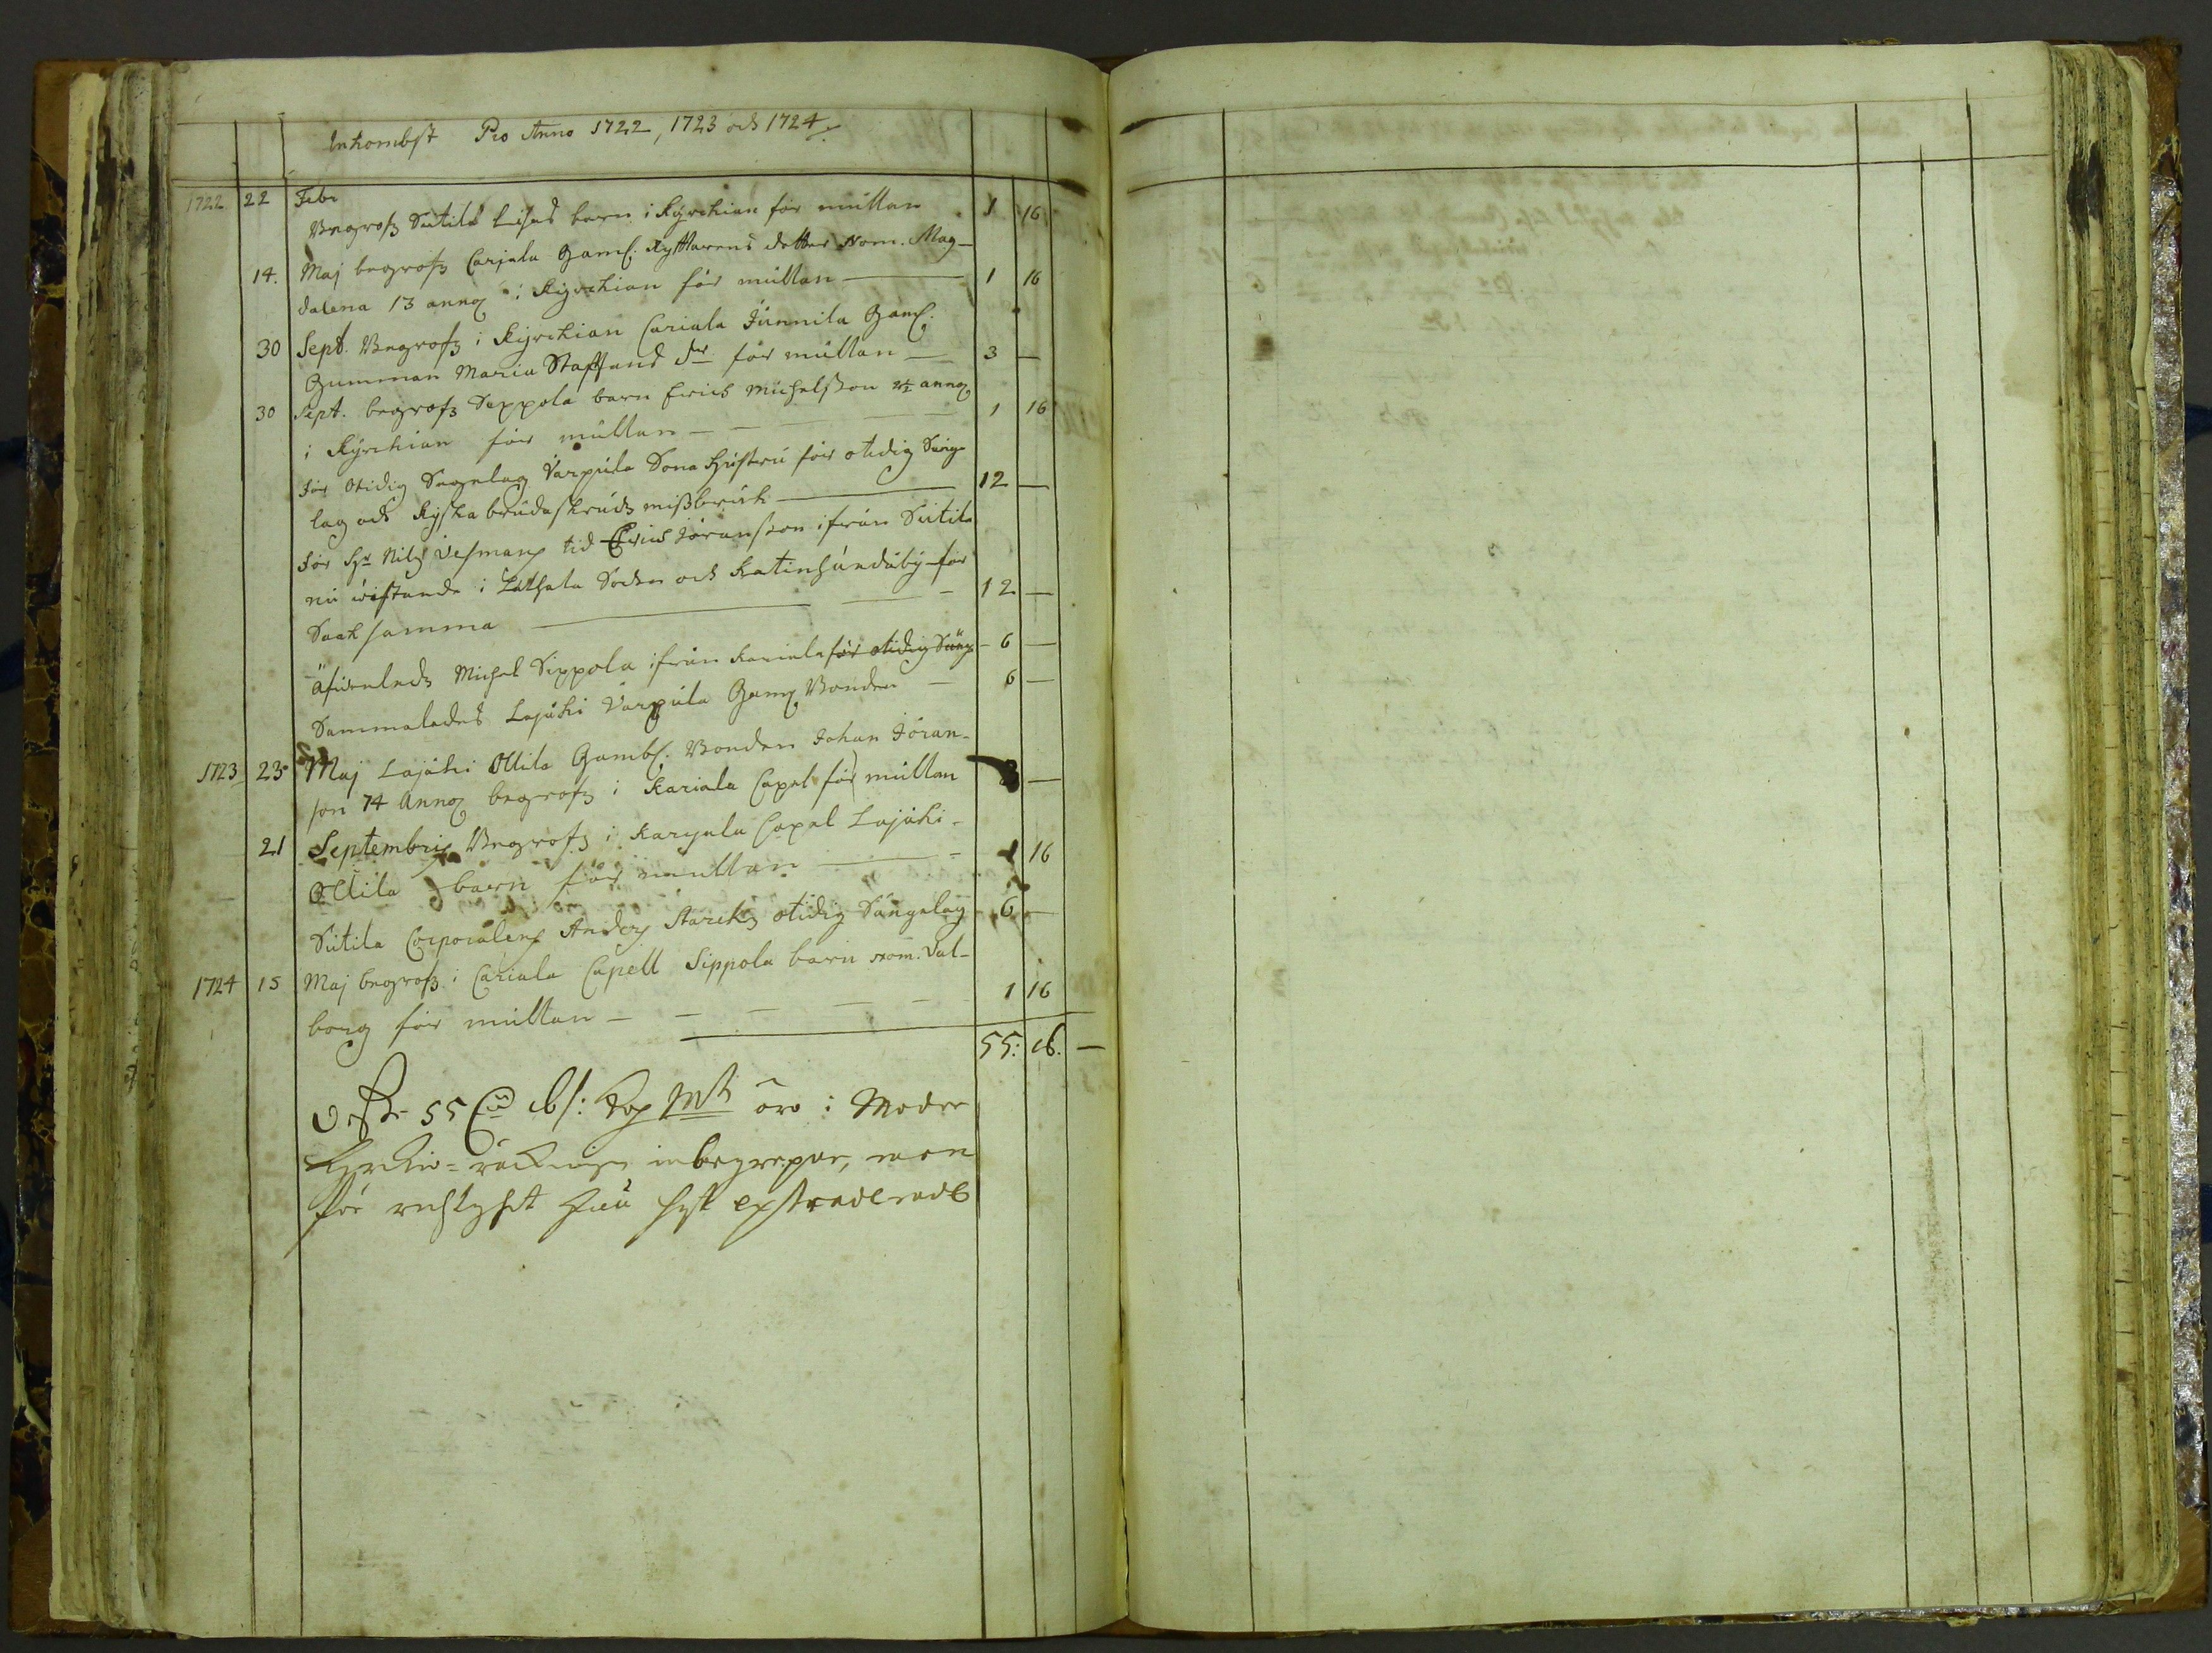 Inkombst Pro Anno 1722, 1723 och 1724
1722 22 Febr
Begrofz Sutila barn i Kyrchian för mullan 1 16
14. Maj begrofz Carjala Gaml. Ryttarens dotter Nom. Mag-
dalena 13 annor i Kyrchian för mullan — 1 16
30 Sept. Begrofz i Kyrchian Cariala Junnila Gaml.
Gumman Maria Staffans dr för mullan — 3 —
30 Sept. begrofz Seppola barn Erich Michelsson annor
i Kyrchian för mullan — — 1 16
för Otidig Sägelag Varpula Sona Hustru för otidig Säng-
lag och Kyrka brudaskruds missbruk — 12 —
för Hr Nils tid Erich Jöransson ifrån Sutila
nu wistande i Laihala Sochn och Katinhända by för
Saak samma — 12 —
Äfwenledz Michel Sippola ifrån Kariala för otidig Säng - 6 —
Sammaledes Lajuki Varpula Gaml Bonden — 6 —
1723 23 Maj Lajuki Ollila Gambl. Bonden Johan Jöran-
son 74 Annor begrofz i Kariala Capel för mullan 3 —
21 Septembris Begrofz i Karjala Capel Lajuki-
Ollila barn för mullan — 1 16
Sutila Corporalens Anders Starcks otidig Sängelag 6 —
1724 15 Maj begrofz i Cariala Capell Sippola barn nom. Val-
borg för mullan — — — 1 16
55: 16. —
55 16/: Kop Mt äro i Moder
Kyrkio-räckningen inbegrepne, men
för hit extraderade